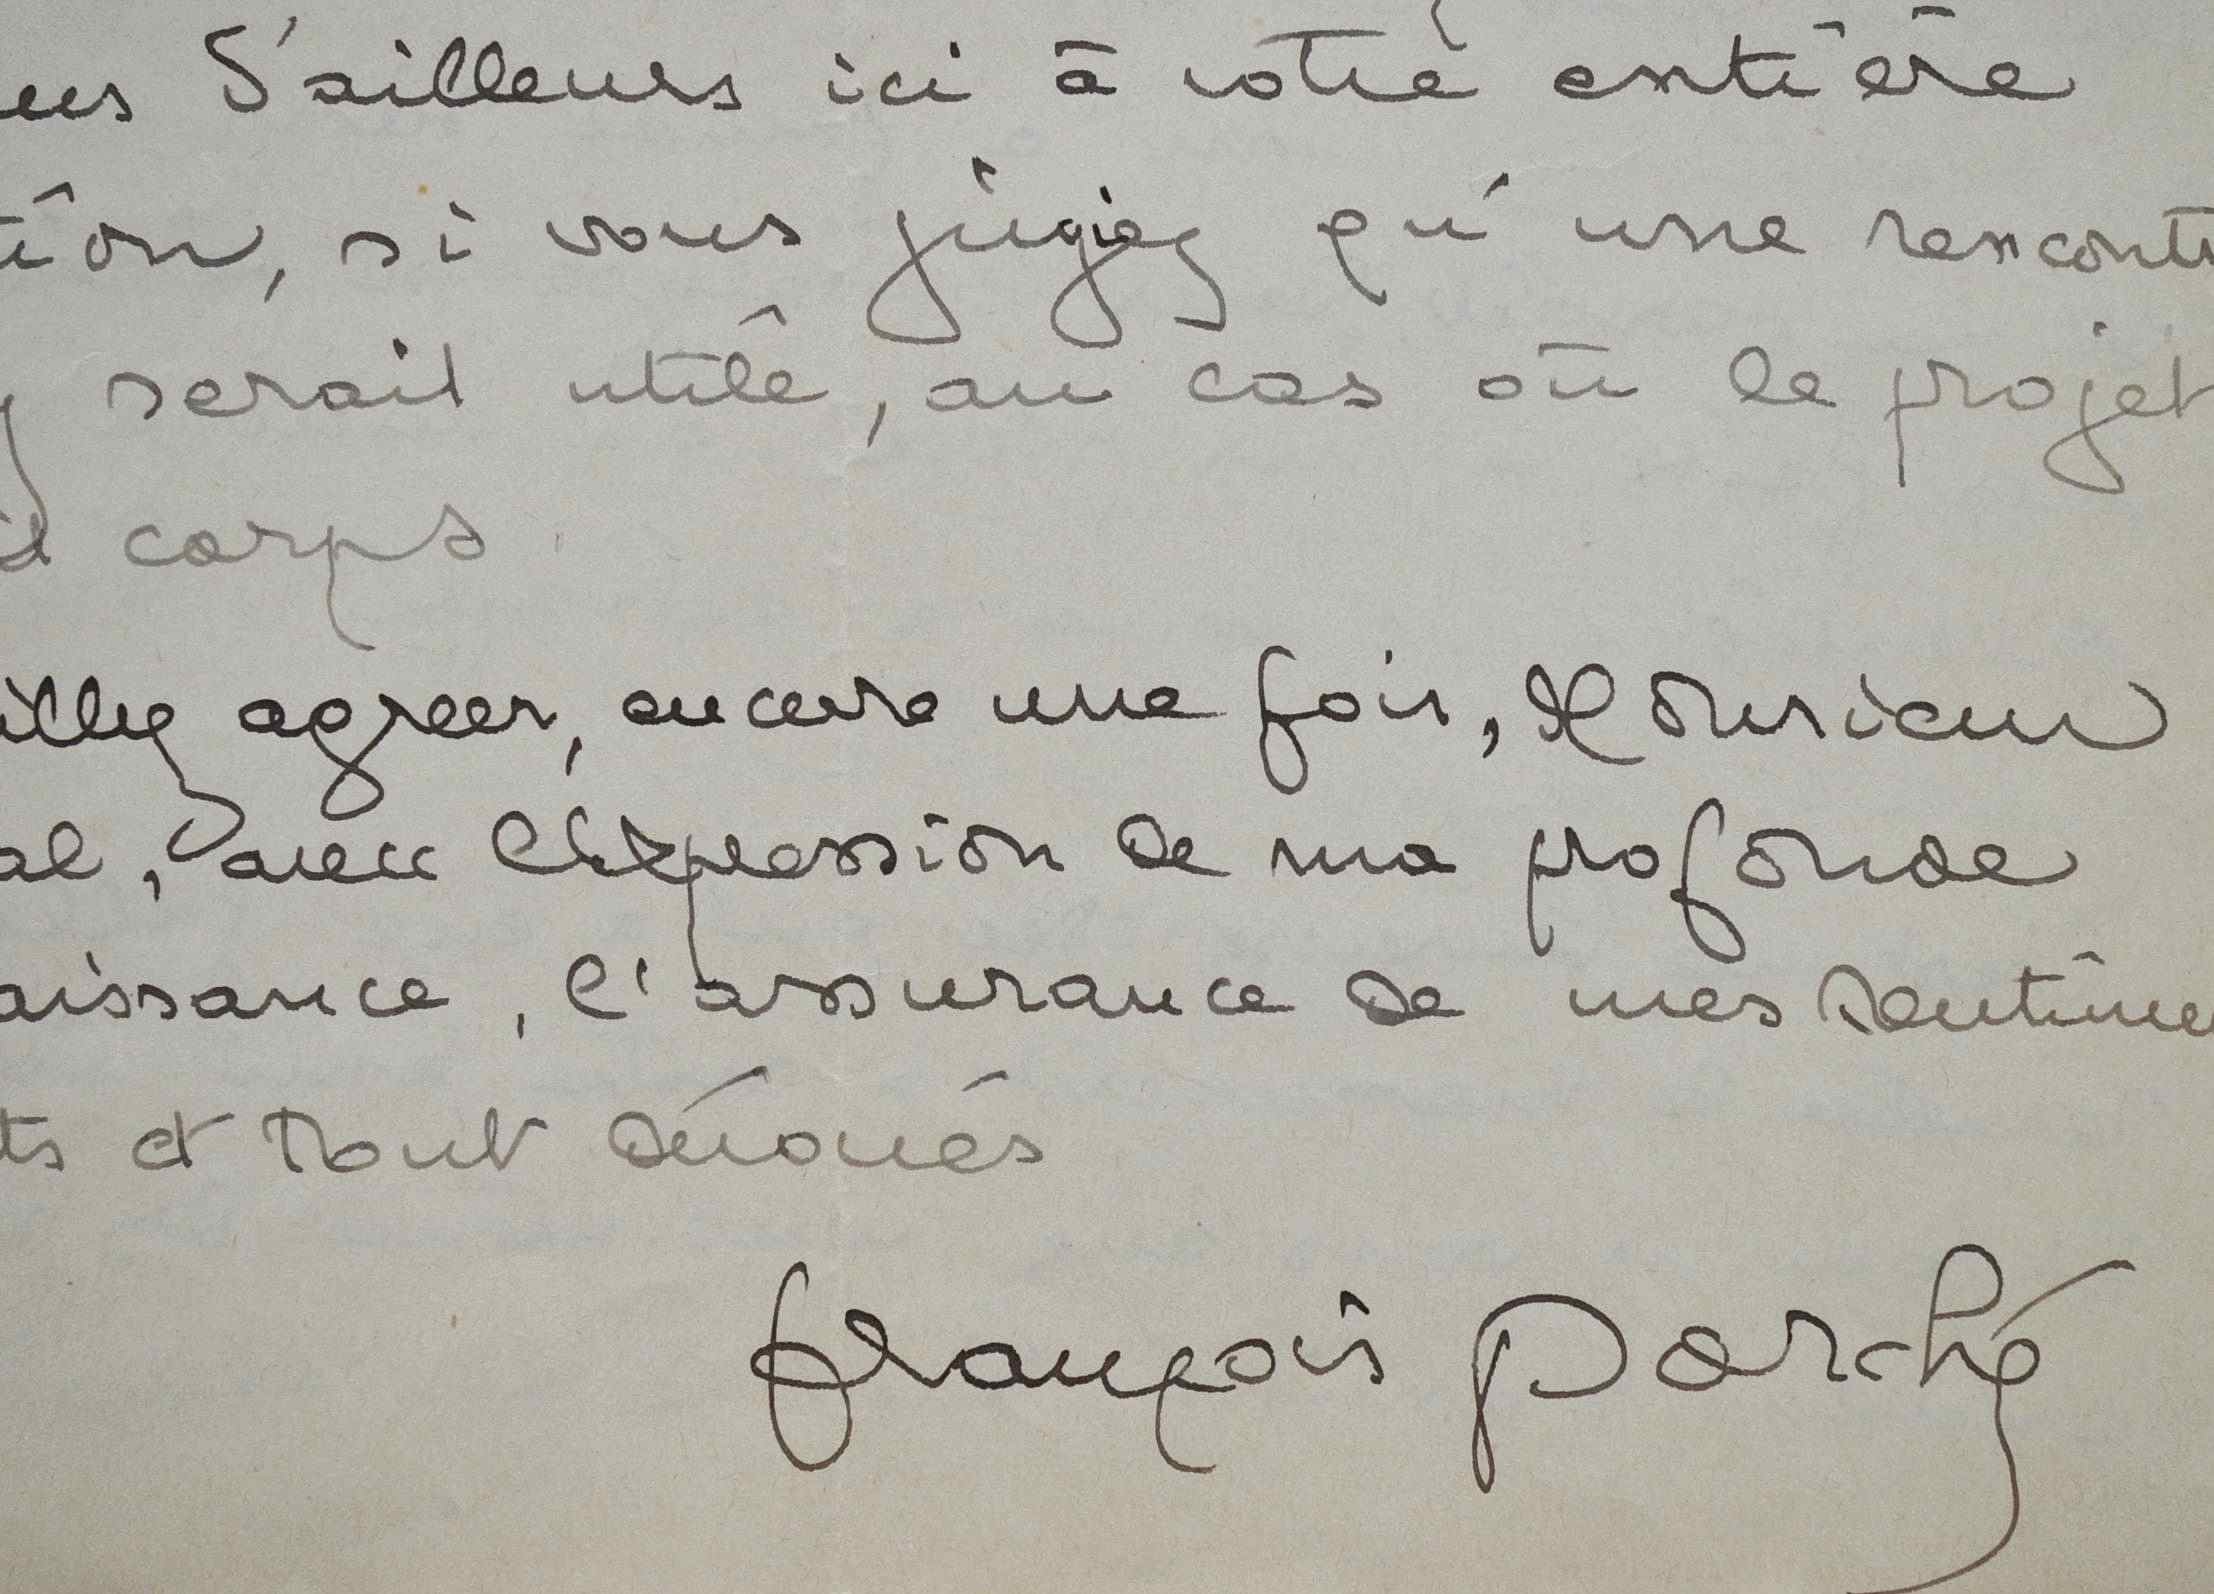 us d'ailleurs ici à votre entière
tion, si vous jugiez qu'une rencontr
y serait utile, au cas où le projet
it corps.
illez agréer, encore une fois, Monsieur
al, avec l'expression de ma profonde
aissance, l'assurance de mes sentime
ts et tout dévoués
François Porché